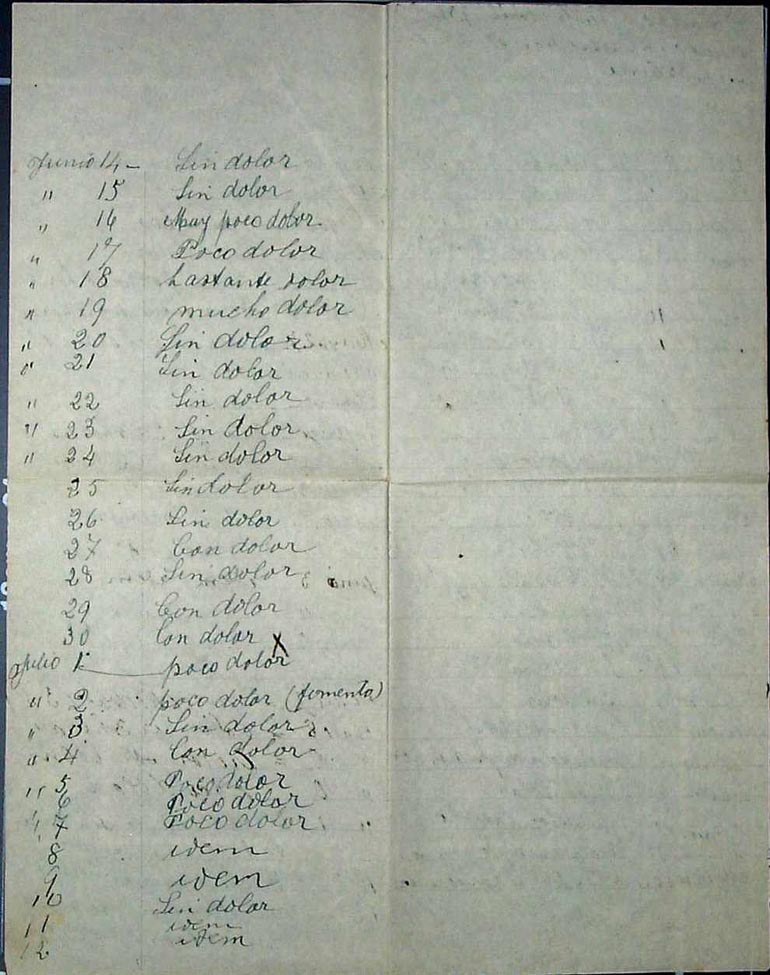 Junio 14 - Sin dolor
" 15 Sin dolor
" 16 Muy poco dolor
" 17 Poco dolor
" 18 bastante dolor
" 19 mucho dolor
" 20 Sin dolor
" 21 Sin dolor
" 22 Sin dolor
" 23 Sin dolor
" 24 Sin dolor
25 Sin dolor
26 Sin dolor
27 Con dolor
28 Sin dolor
29 Con dolor
30 Con dolor
Julio 1 poco dolor X
" 2 poco dolor (fomento)
" 3 Sin dolor
" 4 Con dolor
" 5 Poco dolor
6 Poco dolor
" 7 Poco dolor
8 idem
9 idem
10 Sin dolor
11 idem
12 idem